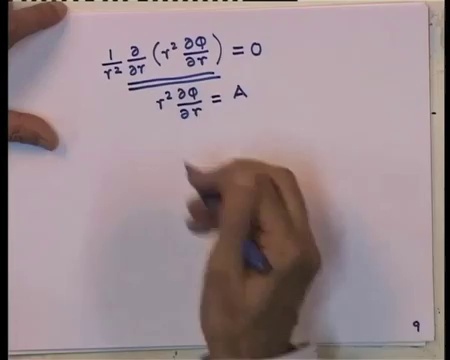 1/r² ∂/∂r (r² ∂Φ/∂r) = 0
r² ∂Φ/∂r = A
9